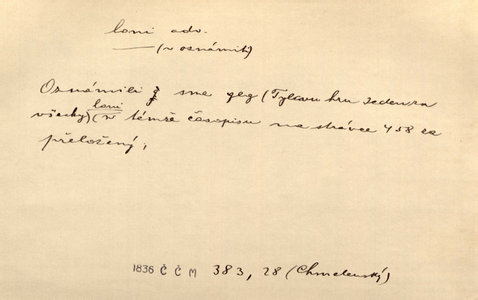 loni adv.
— (v oznámit)
Oznámili sme geg (Tylovu hru Jeden za
všecky) (loni v témže časopisu na stránce 458 co
přeložený,
1836 Č Č M 383, 28 (Chmelenský)